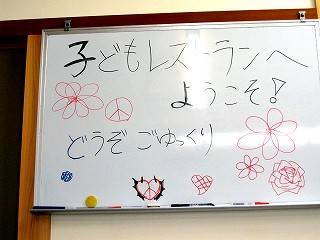 子どもレストランへ
ようこそ!
どうぞ ごゆっくり